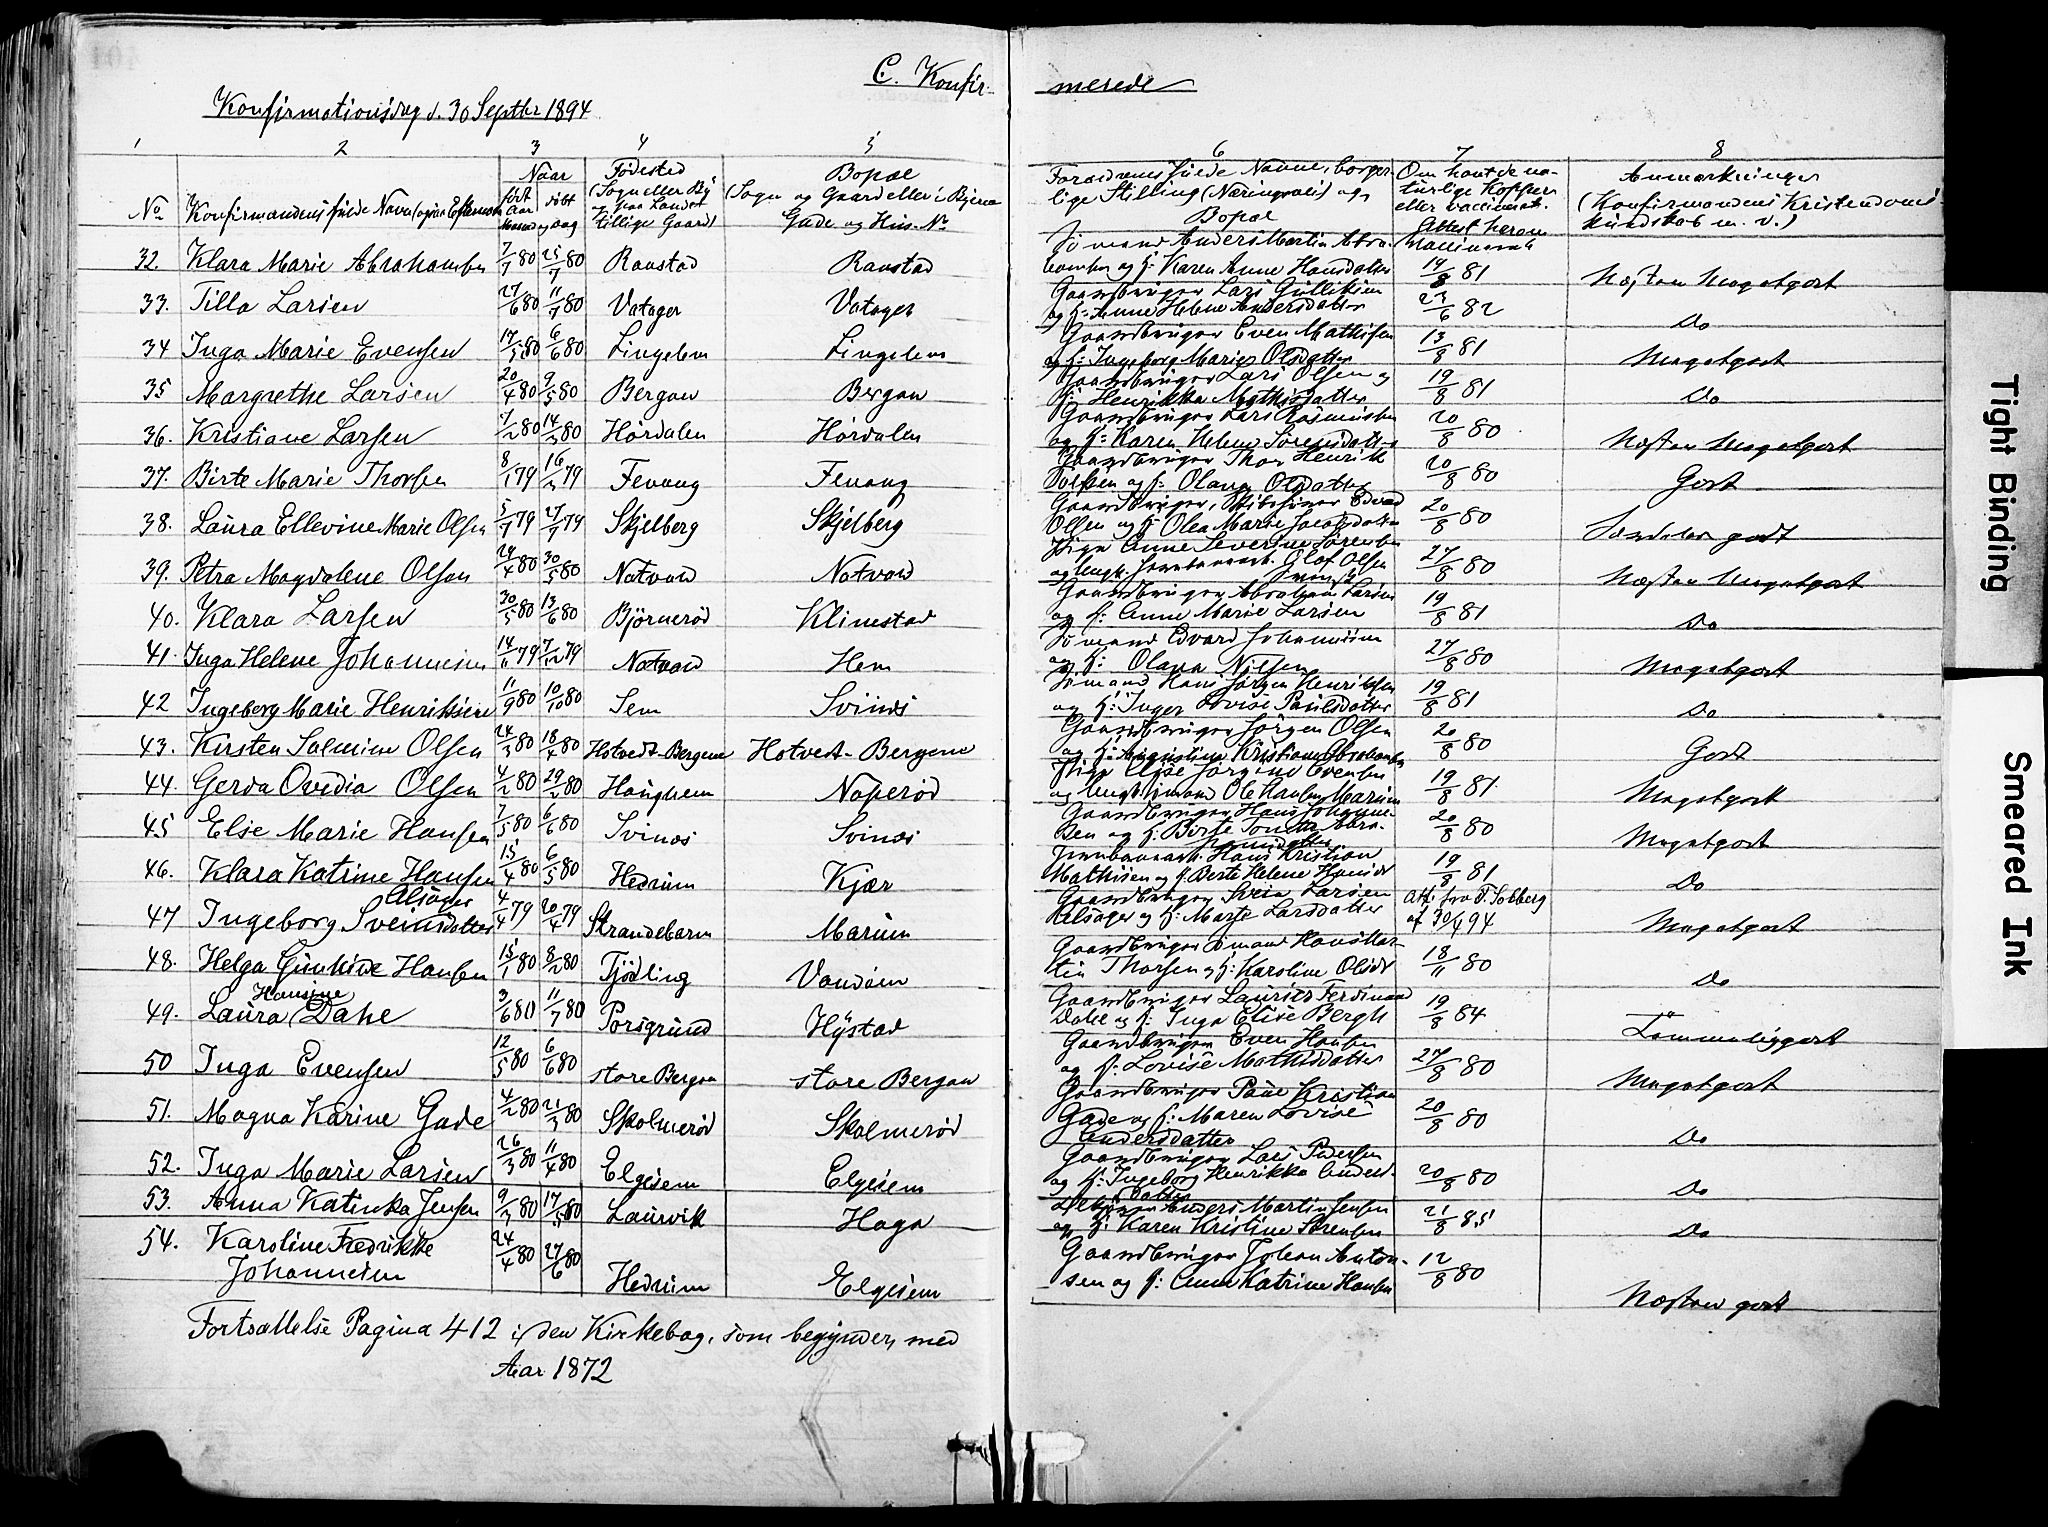 C. Konfir-
merede
Konfirmationsdag d. 30 Septbr 1894
1 2 3 4 5 6 7 8
No Konfirmandens fulde Navn
Naar født Aar døbt
Fødested (Sogn eller By og paa Landet tillige Gaard)
Bopæl (Sogn og Gaard eller i Byerne Gade og Hus-No
Forældrenes fulde Navne, borger-
lige Stilling (Næringsvei) og
Bopæl
Om havt de na-
turlige Kopper
eller vaccineret.
Attest herom
Anmærkninger
(Konfirmandens Kristendoms-
kundskab m. v.)
32. Klara Marie Abrahamsen 7/7 80 25/7 80 Ranstad Ranstad Sømand Anders Martin Abra-
hamsen og H: Karen Anne Hansdatter 19/8 81 Næsten Meget godt
33. Tilla Larsen 27/6 80 11/7 80 Vatager Vatager Gaardbruger Lars Gulliksen
og H: Anne Helene Andersdatter 27/6 82 Do
34 Inga Marie Evensen 17/5 80 6/6 80 Lingelem Lingelem Gaardbruger Even Mathisen
og H: Ingeborg Marie Olsdatter 13/8 81 Megetgodt
35 Margrethe Larsen 20/4 80 9/5 80 Bergan Bergan Gaardbruger Lars Olsen og
H: Henrikka Mathisdatter 19/8 81 Do
36. Kristiane Larsen 7/2 80 14/3 80 Hørdalen Hørdalen Gaardbruger Lars Rasmussen
og H: Karen Helene Sørensdatter 20/8 80 Næsten Megetgodt
37. Birte Marie Thorsen 8/1 79 16/3 79 Fevang Fevang Gaardbruger Thor Henrik
og H: Olava Olsdatter 20/8 80 Godt
38. Laura Ellevine Marie Olsen 5/7 79 27/7 79 Skjelberg Skjelberg Gaardbruger, Edvard
Olsen og H: Olea Marie Jacobsdatter 20/8 80 Særdeles godt
39. Petra Magdalene Olsen 24/4 80 30/5 80 Natvad Natvad Pige Anne Severine Sørensen
og Ungk. Jernbanearb. Olaf Olsen 27/8 80 Næsten Megetgodt
40. Klara Larsen 30/5 80 13/6 80 Bjørnerød Klinestad Gaardbruger Abraham Larsen
og H: Anne Marie Larsen 19/8 81 Do
41. Inga Helene Johannesen 14/11 79 7/12 79 Natvad Hem Sømand Edvard Johannesen
og H: Olava Nilsen 27/8 80 Megetgodt
42 Ingeborg Marie Henriksen 11/9 80 10/10 80 Sem Svinæs Sømand Hans Jørgen Henriksen
og H: Inger Lovise Paulsdatter 19/8 81 Do
43. Kirsten Salmine Olsen 24/3 80 18/4 80 Hotvedt-Bergene Hotvedt-Bergene Gaardbruger Jørgen Olsen
og H: Augustine Kristiane Abrahamsen 20/8 80 Godt
44. Gerda Ovedia Olsen 4/2 80 29/2 80 Haughem Naperød Pige Elise Jørgine Evensen
og Ungk. Sømand Ole Hansen Marum 19/8 81 Megetgodt
45 Else Marie Hansen 7/5 80 6/6 80 Svinæs Svinæs Gaardbruger Hans Johanne-
sen og H: Birte Tomine Abra-
hamsdatter 20/8 80 Megetgodt
46. Klara Katrine Hansen 15/4 80 6/5 80 Hedrum Kjær Jernbanearb. Hans Kristian
Mathisen og H. Berte Helene Hansdt 19/8 81 Do
47 Ingeborg Sveinsdatter Alsåger 4/4 79 20/4 79 Strandebarm Marum Gaardbruger Svein Larsen
Alsåger og H: Marte Larsdatter Att. fra P. Solberg
af 30/4 94 Megetgodt
48. Helga Gunhilde Hansen 15/1 80 8/2 80 Tjødling Gaardbruger Sømand Hans Mar-
tin Thorsen og H: Karoline Olsdt 18/11 80 Do
49. Laura Hansine Dahl 3/6 80 11/7 80 Porsgrund Hystad Gaardbruger Laurits Ferdinand
Dahl og H. Inga Elise Bergh 19/8 84 Temmeliggodt
50 Inga Evensen 12/5 80 6/6 80 store Bergan store Bergan Gaardbruger Even Hansen
og H. Lovise Mathisdatter 27/8 80 Megetgodt
51. Magna Karine Gade 4/2 80 21/3 80 Skolmerød Skolmerød Gaardbruger Paul Kristian
Gade og H: Maren Lovise
Andersdatter 20/8 80 Do
52. Inga Marie Larsen 26/3 80 11/4 80 Elgesem Elgesem Gaardbruger Lars Pedersen
og H: Ingeborg Henrikka Anders-
datter 20/8 80 Do
53. Anna Katinka Jensen 9/3 80 17/5 80 Laurvik Haga Anders Martin Jensen
og H. Karen Kristine Sørensen 21/8 85 Do
54. Karoline Fredrikke
Johannesen 24/4 80 27/6 80 Hedrum Elgesem Gaardbruger Johan Anton-
sen og H: Anne Katrine Hansen 12/8 80 Næsten godt
Fortsættelse Pagina 412 i den Kirkebog, som begynder med
Aar 1872
Tight Binding
Smeared Ink